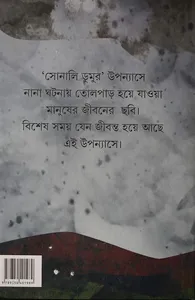 ‘সোনালি ডুমুর’ উপন্যাসে
নানা ঘটনায় তোলপাড় হয়ে যাওয়া
মানুষের জীবনের ছবি।
বিশেষ সময় যেন জীবন্ত হয়ে আছে
এই উপন্যাসে।